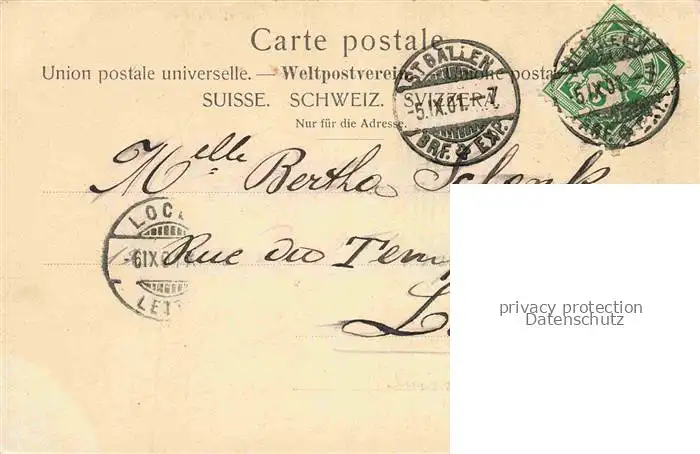 Carte postale.
Union postale universelle. — Weltpostverein. — Unione postale
SUISSE. SCHWEIZ. SVIZZERA.
Nur für die Adresse.
ST. GALLEN
-5.IX.01. - 7
BRF. & EXP.
5.IX.01. -
Mlle Bertha Schenk
LOC
-6.IX.0
LET
Rue du Temp
L
privacy protection
Datenschutz